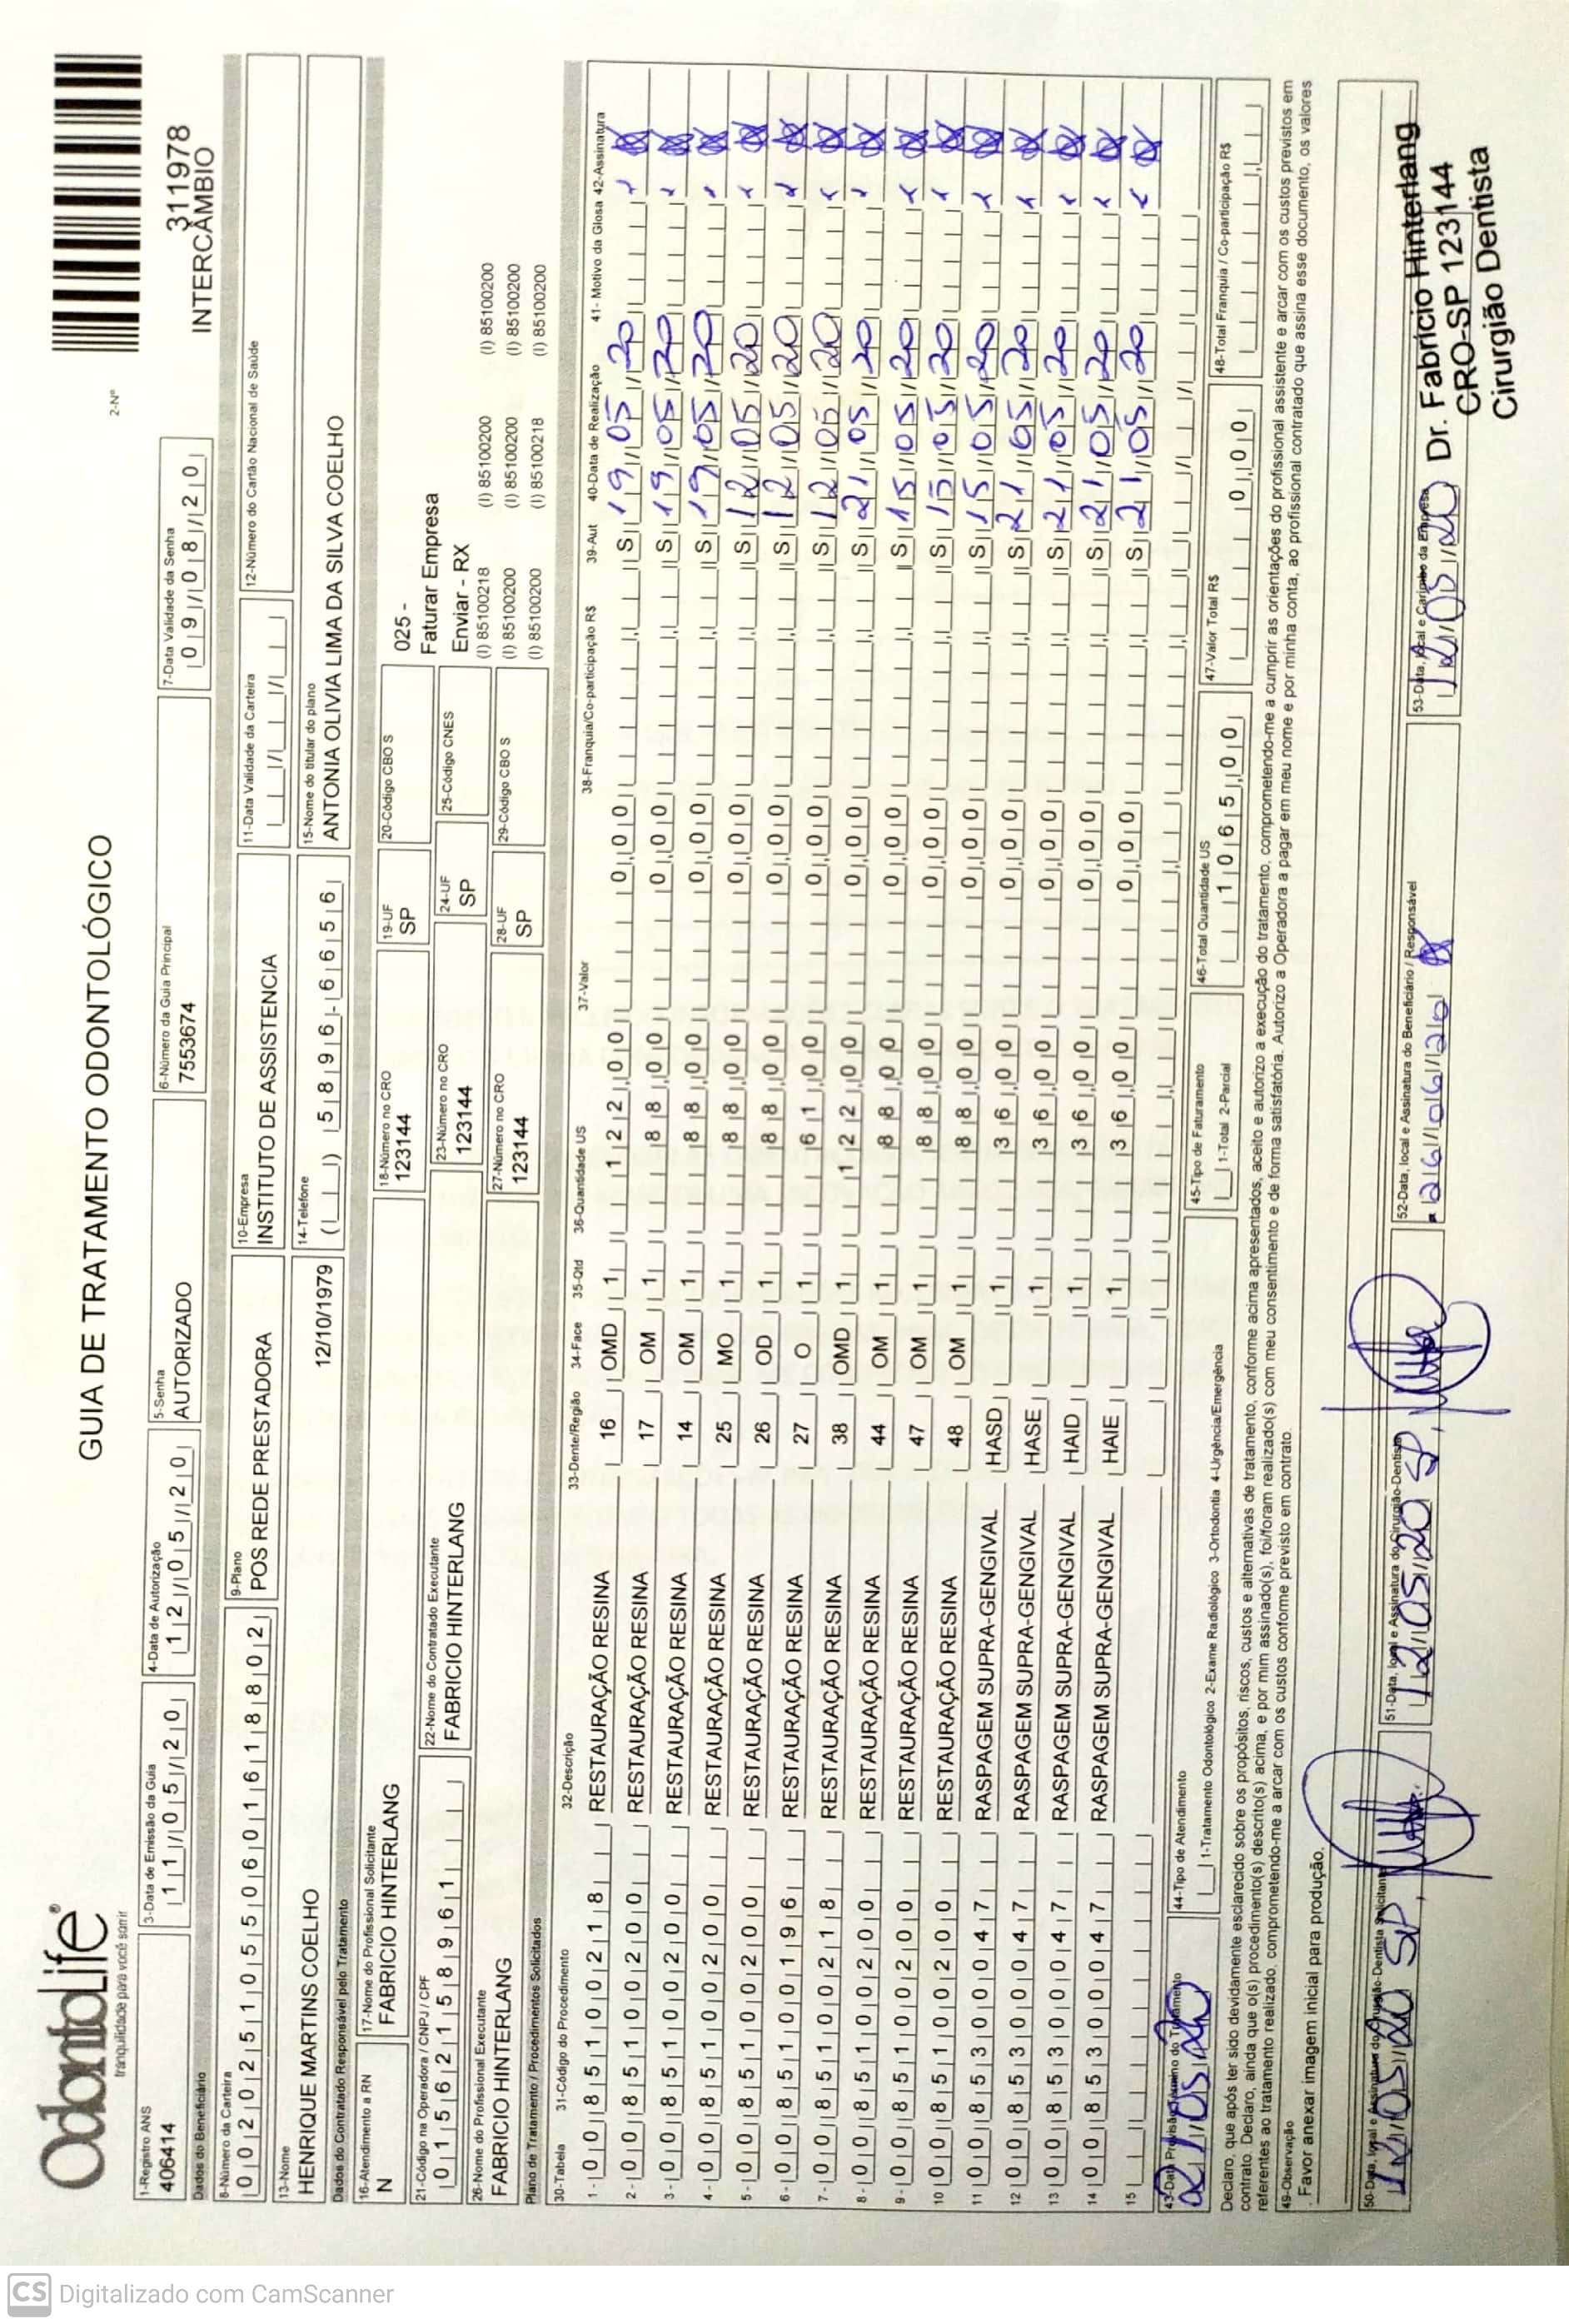 OdontoLife®
tranquilidade para você sorrir
GUIA DE TRATAMENTO ODONTOLÓGICO
2-Nº
311978
INTERCÂMBIO
1-Registro ANS
406414
3-Data de Emissão da Guia
11/05/20
4-Data de Autorização
12/05/20
5-Senha
AUTORIZADO
6-Número da Guia Principal
7553674
7-Data Validade da Senha
09/08/20
Dados do Beneficiário
8-Número da Carteira
00202510550601618802
9-Plano
POS REDE PRESTADORA
10-Empresa
INSTITUTO DE ASSISTENCIA
11-Data Validade da Carteira
12-Número do Cartão Nacional de Saúde
13-Nome
HENRIQUE MARTINS COELHO
12/10/1979
14-Telefone
( ) 5896-6656
15-Nome do titular do plano
ANTONIA OLIVIA LIMA DA SILVA COELHO
Dados do Contratado Responsável pelo Tratamento
16-Atendimento a RN
N
17-Nome do Profissional Solicitante
FABRICIO HINTERLANG
18-Número no CRO
123144
19-UF
SP
20-Código CBO S
025 -
Faturar Empresa
21-Código na Operadora / CNPJ / CPF
01562158961
22-Nome do Contratado Executante
FABRICIO HINTERLANG
23-Número no CRO
123144
24-UF
SP
25-Código CNES
Enviar - RX
26-Nome do Profissional Executante
FABRICIO HINTERLANG
27-Número no CRO
123144
28-UF
SP
29-Código CBO S
(I) 85100218 (I) 85100200 (I) 85100200
(I) 85100200 (I) 85100200 (I) 85100200
(I) 85100200 (I) 85100218 (I) 85100200
Plano de Tratamento / Procedimentos Solicitados
30-Tabela 31-Código do Procedimento 32-Descrição 33-Dente/Região 34-Face 35-Qtd 36-Quantidade US 37-Valor 38-Franquia/Co-participação R$ 39-Aut 40-Data de Realização 41- Motivo da Glosa 42-Assinatura
1 - 00 85100218 RESTAURAÇÃO RESINA 16 OMD 1 122,00 0,00 S 19/05/20
2 - 00 85100200 RESTAURAÇÃO RESINA 17 OM 1 88,00 0,00 S 19/05/20
3 - 00 85100200 RESTAURAÇÃO RESINA 14 OM 1 88,00 0,00 S 19/05/20
4 - 00 85100200 RESTAURAÇÃO RESINA 25 MO 1 88,00 0,00 S 12/05/20
5 - 00 85100200 RESTAURAÇÃO RESINA 26 OD 1 88,00 0,00 S 12/05/20
6 - 00 85100196 RESTAURAÇÃO RESINA 27 O 1 61,00 0,00 S 12/05/20
7 - 00 85100218 RESTAURAÇÃO RESINA 38 OMD 1 122,00 0,00 S 21/05/20
8 - 00 85100200 RESTAURAÇÃO RESINA 44 OM 1 88,00 0,00 S 15/05/20
9 - 00 85100200 RESTAURAÇÃO RESINA 47 OM 1 88,00 0,00 S 15/05/20
10 00 85100200 RESTAURAÇÃO RESINA 48 OM 1 88,00 0,00 S 15/05/20
11 00 85300047 RASPAGEM SUPRA-GENGIVAL HASD 1 36,00 0,00 S 21/05/20
12 00 85300047 RASPAGEM SUPRA-GENGIVAL HASE 1 36,00 0,00 S 21/05/20
13 00 85300047 RASPAGEM SUPRA-GENGIVAL HAID 1 36,00 0,00 S 21/05/20
14 00 85300047 RASPAGEM SUPRA-GENGIVAL HAIE 1 36,00 0,00 S 21/05/20
15
43-Data Previsão Término do Tratamento
21/05/20
44-Tipo de Atendimento
1-Tratamento Odontológico 2-Exame Radiológico 3-Ortodontia 4-Urgência/Emergência
45-Tipo de Faturamento
1-Total 2-Parcial
46-Total Quantidade US
1065,00
47-Valor Total R$
0,00
48-Total Franquia / Co-participação R$
Declaro, que após ter sido devidamente esclarecido sobre os propósitos, riscos, custos e alternativas de tratamento, conforme acima apresentados, aceito e autorizo a execução do tratamento, comprometendo-me a cumprir as orientações do profissional assistente e arcar com os custos previstos em
contrato. Declaro, ainda que o(s) procedimento(s) descrito(s) acima, e por mim assinado(s), foi/foram realizado(s) com meu consentimento e de forma satisfatória. Autorizo a Operadora a pagar em meu nome e por minha conta, ao profissional contratado que assina esse documento, os valores
referentes ao tratamento realizado, comprometendo-me a arcar com os custos conforme previsto em contrato.
49-Observação
. Favor anexar imagem inicial para produção.
50-Data, local e Assinatura do Cirurgião-Dentista Solicitante
12/05/20 SP,
51-Data, local e Assinatura do Cirurgião-Dentista
12/05/20 SP,
52-Data, local e Assinatura do Beneficiário / Responsável
26/06/20
53-Data, local e Carimbo da Empresa
12/05/20
Dr. Fabrício Hinterlang
CRO-SP 123144
Cirurgião Dentista
CS Digitalizado com CamScanner